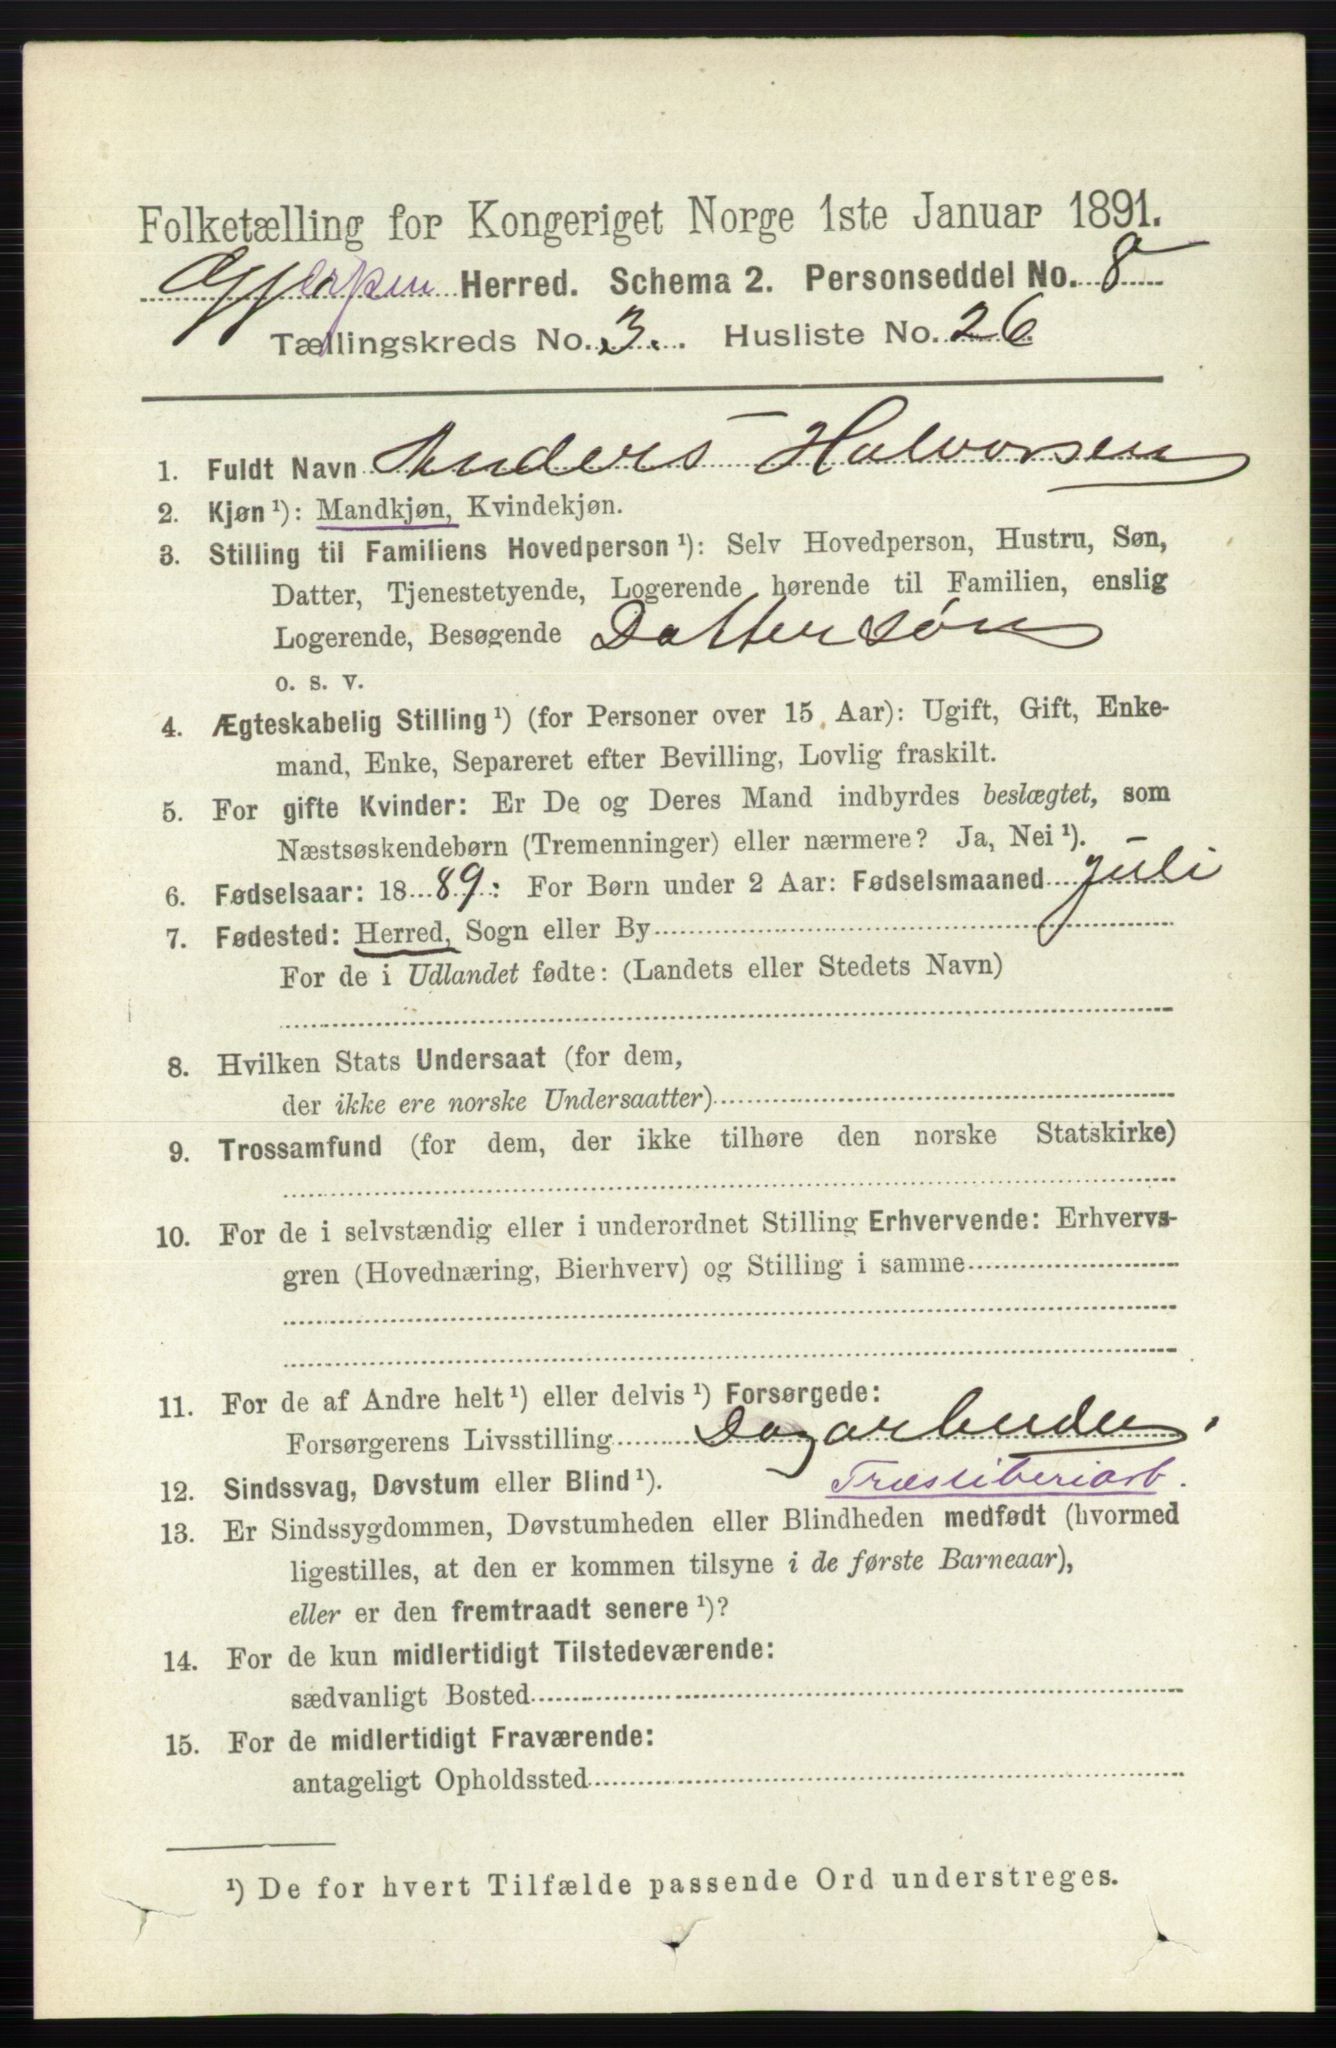 Folketælling for Kongeriget Norge 1ste Januar 1891.
Gjerpen Herred. Schema 2. Personseddel No. 8
Tællingskreds No. 3. Husliste No. 26
1. Fuldt Navn Anders Halvorsen
2. Kjøn ¹): Mandkjøn, Kvindekjøn.
3. Stilling til Familiens Hovedperson ¹): Selv Hovedperson, Hustru, Søn,
Datter, Tjenestetyende, Logerende hørende til Familien, enslig
Logerende, Besøgende Dattersøn
o. s. v.
4. Ægteskabelig Stilling ¹) (for Personer over 15 Aar): Ugift, Gift, Enke-
mand, Enke, Separeret efter Bevilling, Lovlig fraskilt.
5. For gifte Kvinder: Er De og Deres Mand indbyrdes beslægtet, som
Næstsøskendebørn (Tremenninger) eller nærmere? Ja, Nei ¹).
6. Fødselsaar: 1889: For Børn under 2 Aar: Fødselsmaaned Juli
7. Fødested: Herred, Sogn eller By
For de i Udlandet fødte: (Landets eller Stedets Navn)
8. Hvilken Stats Undersaat (for dem,
der ikke ere norske Undersaatter)
9. Trossamfund (for dem, der ikke tilhøre den norske Statskirke)
10. For de i selvstændig eller i underordnet Stilling Erhvervende: Erhvervs-
gren (Hovednæring, Bierhverv) og Stilling i samme
11. For de af Andre helt ¹) eller delvis ¹) Forsørgede:
Forsørgerens Livsstilling Dagarbeider.
12. Sindssvag, Døvstum eller Blind ¹). Træsliberiarb.
13. Er Sindssygdommen, Døvstumheden eller Blindheden medfødt (hvormed
ligestilles, at den er kommen tilsyne i de første Barneaar),
eller er den fremtraadt senere ¹)?
14. For de kun midlertidigt Tilstedeværende:
sædvanligt Bosted
15. For de midlertidigt Fraværende:
antageligt Opholdssted
¹) De for hvert Tilfælde passende Ord understreges.